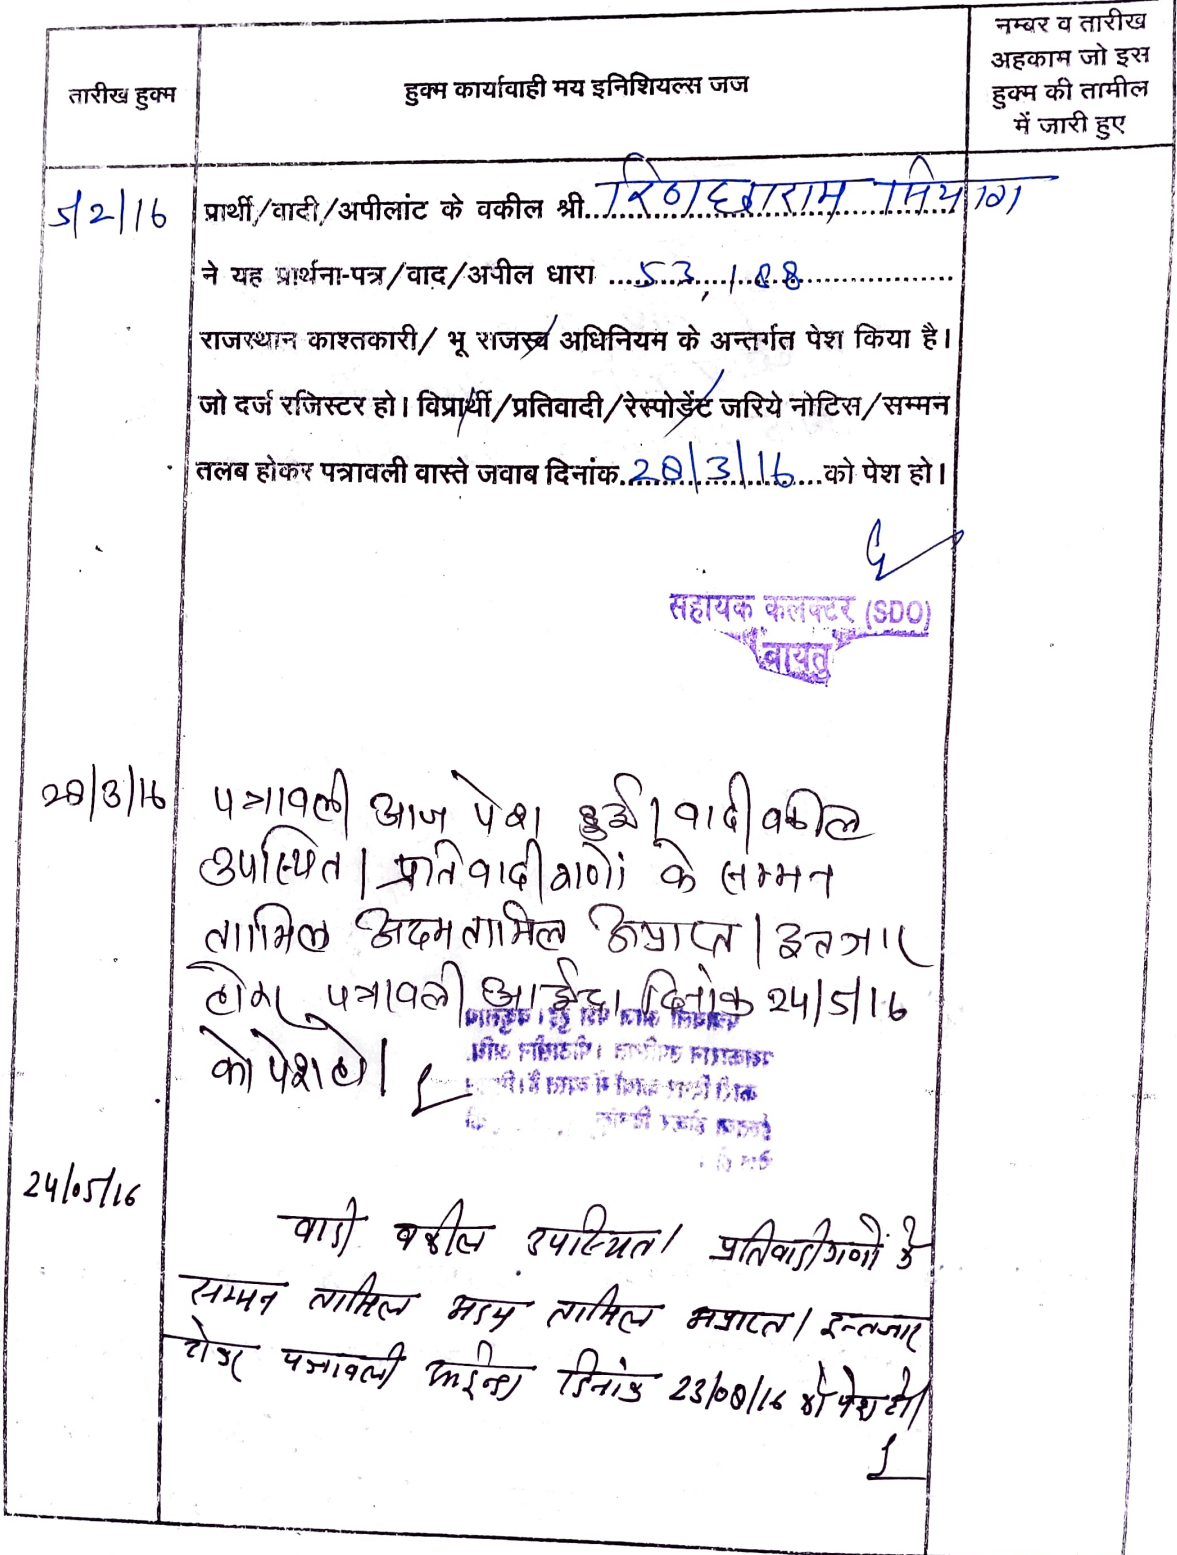 तारीख हुक्म
हुक्म कार्यावाही मय इनिशियल्स जज
नम्बर व तारीख
अहकाम जो इस
हुक्म की तामील
में जारी हुए
5/2/16
प्रार्थी/वादी/अपीलांट के वकील श्री
ने यह प्रार्थना-पत्र/वाद/अपील धारा ...53,188...
राजस्थान काश्तकारी/ भू राजस्व अधिनियम के अन्तर्गत पेश किया है।
जो दर्ज रजिस्टर हो। विप्रार्थी/प्रतिवादी/रेस्पोडेंट जरिये नोटिस/सम्मन
तलब होकर पत्रावली वास्ते जवाब दिनांक..28/3/16...को पेश हो।
सहायक कलक्टर (SDO)
बायतु
28/3/16
पत्रावली आज पेश हुई। वादी वकील
उपस्थित। प्रतिवादीगणों के सम्मन
तामिल अदम तामिल अप्राप्त। इन्तजार
होकर पत्रावली आईन्दा दिनांक 24/5/16
को पेश हो।
24/05/16
वादी वकील उपस्थित। प्रतिवादीगणों के
सम्मन तामिल अदम तामिल अप्राप्त। इन्तजार
होकर पत्रावली आईन्दा दिनांक 23/08/16 को पेश हो।